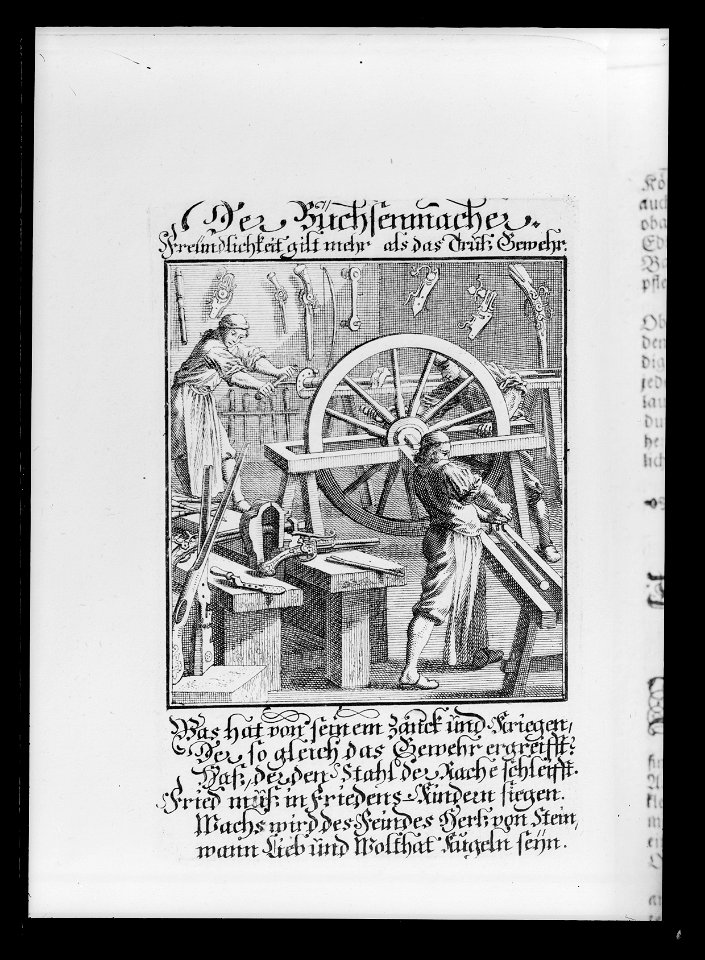 Der Büchsenmacher.
Freündlichkeit gilt mehr als das Trutz Gewehr.
Was hat von seinem Zanck und Kriegen,
Der so gleich das Gewehr ergreifft?
Haß, der den Stahl der Rache schleifft.
Fried muß in Friedens-Kindern siegen.
Wachs wird des Feindes Hertz von Stein,
wann Lieb und Wolthat Kugeln seÿn.
Kö
auch
oba
Ed
Ba
pfle
Ob
den
dig
jede
lau
du
he
lich